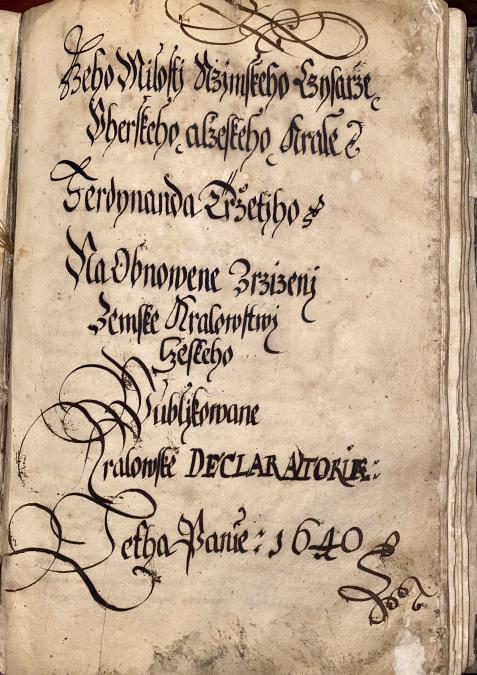 Jeho Milosti Rzimskeho Czysarze,
Vherskeho, a Czeskeho, Krale ꝛc
Ferdynanda Trzetiho
Na Obnowene Zrzizenj
Zemske Kralowstwj
Czeskeho
Publikowane
Kralowske DECLARATORIÆ:
Letha Panie: 1640